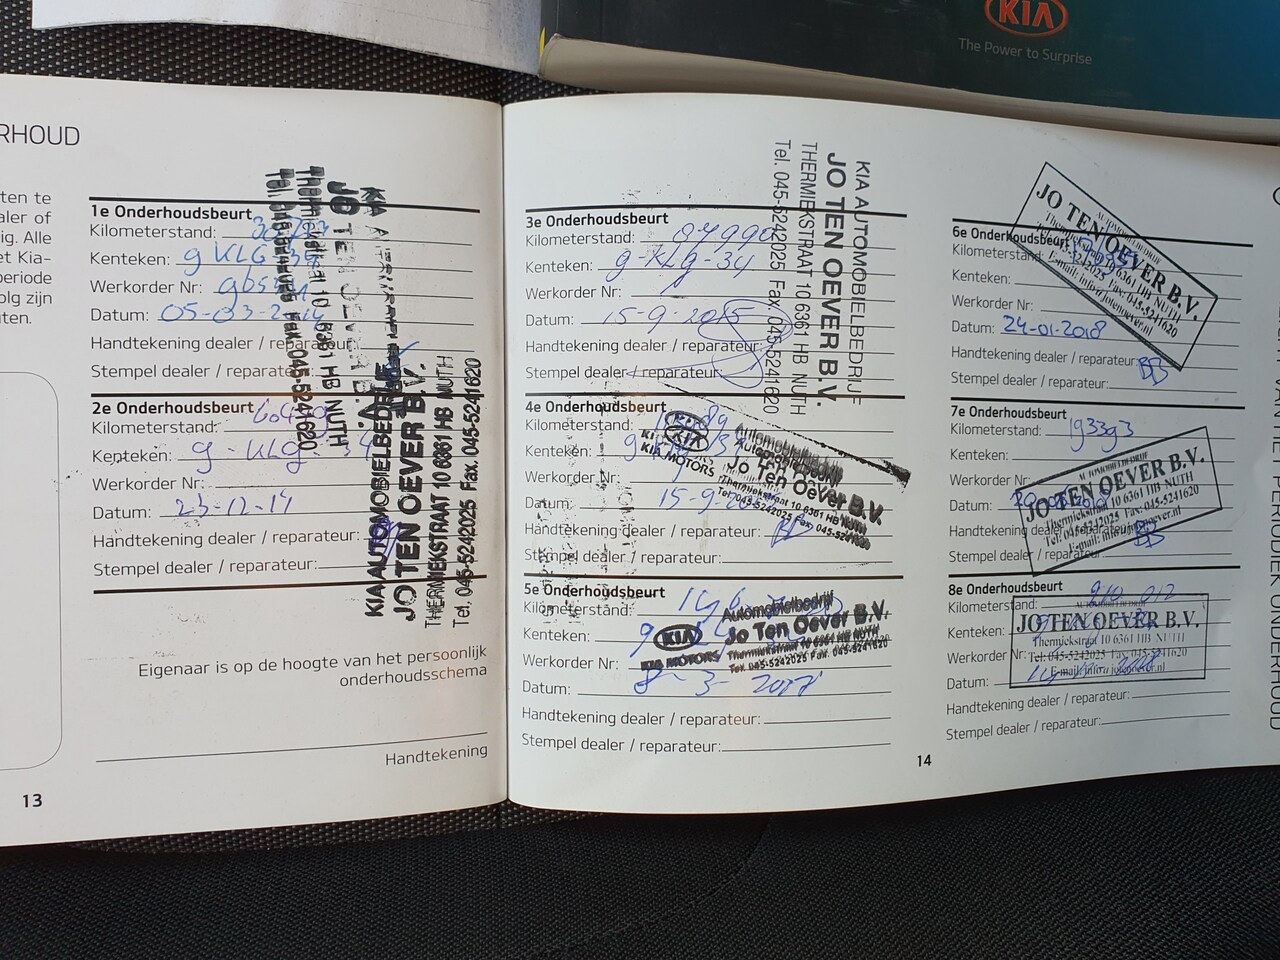 KIA
The Power to Surprise
RHOUD
ten te
aler of
ig. Alle
et Kia-
periode
olg zijn
ten.
1e Onderhoudsbeurt
Kilometerstand:
Kenteken: 9 KLG
Werkorder Nr:
Datum: 05-03-2014
Handtekening dealer / reparateur:
Stempel dealer / reparateur:
KIA
JO TEN OEVER
10 6361 HB NUTH
Fax. 045-5241620
2e Onderhoudsbeurt
Kilometerstand:
Kenteken: 9-KLG-34
Werkorder Nr:
Datum: 23-12-14
Handtekening dealer / reparateur:
Stempel dealer / reparateur:
KIA AUTOMOBIELBEDRIJF
JO TEN OEVER B.V.
THERMIEKSTRAAT 10 6361 HB NUTH
Tel. 045-5242025 Fax. 045-5241620
Eigenaar is op de hoogte van het persoonlijk
onderhoudsschema
Handtekening
13
3e Onderhoudsbeurt
Kilometerstand:
Kenteken: 9-KLG-34
Werkorder Nr:
Datum: 15-9-2015
Handtekening dealer / reparateur:
Stempel dealer / reparateur:
KIA AUTOMOBIELBEDRIJF
JO TEN OEVER B.V.
THERMIEKSTRAAT 10 6361 HB NUTH
Tel. 045-5242025 Fax. 045-5241620
4e Onderhoudsbeurt
Kilometerstand:
Kenteken:
Werkorder Nr:
Datum: 15-9-
Handtekening dealer / reparateur:
Stempel dealer / reparateur:
KIA
KIA MOTORS
Automobielbedrijf
Jo Ten Oever B.V.
Thermiekstraat 10 6361 HB NUTH
Tel. 045-5242025 Fax. 045-5241620
5e Onderhoudsbeurt
Kilometerstand:
Kenteken: 9
Werkorder Nr:
Datum: 8-3-2017
Handtekening dealer / reparateur:
Stempel dealer / reparateur:
KIA
KIA MOTORS
Automobielbedrijf
Jo Ten Oever B.V.
Thermiekstraat 10 6361 HB NUTH
Tel. 045-5242025 Fax. 045-5241620
6e Onderhoudsbeurt
Kilometerstand:
Kenteken:
Werkorder Nr:
Datum: 24-01-2018
Handtekening dealer / reparateur:
Stempel dealer / reparateur:
AUTOMOBIELBEDRIJF
JO TEN OEVER B.V.
Thermiekstraat 10 6361 HB NUTH
Tel: 045-5242025 Fax: 045-5241620
E-mail: info@jotenoever.nl
7e Onderhoudsbeurt
Kilometerstand: 193393
Kenteken:
Werkorder Nr:
Datum:
Handtekening dealer / reparateur:
Stempel dealer / reparateur:
AUTOMOBIELBEDRIJF
JO TEN OEVER B.V.
Thermiekstraat 10 6361 HB NUTH
Tel: 045-5242025 Fax: 045-5241620
E-mail: info@jotenoever.nl
8e Onderhoudsbeurt
Kilometerstand: 210 012
Kenteken:
Werkorder Nr:
Datum:
Handtekening dealer / reparateur:
Stempel dealer / reparateur:
AUTOMOBIELBEDRIJF
JO TEN OEVER B.V.
Thermiekstraat 10 6361 HB NUTH
Tel: 045-5242025 Fax: 045-5241620
E-mail: info@jotenoever.nl
14
PERIODIEK ONDERHOUD